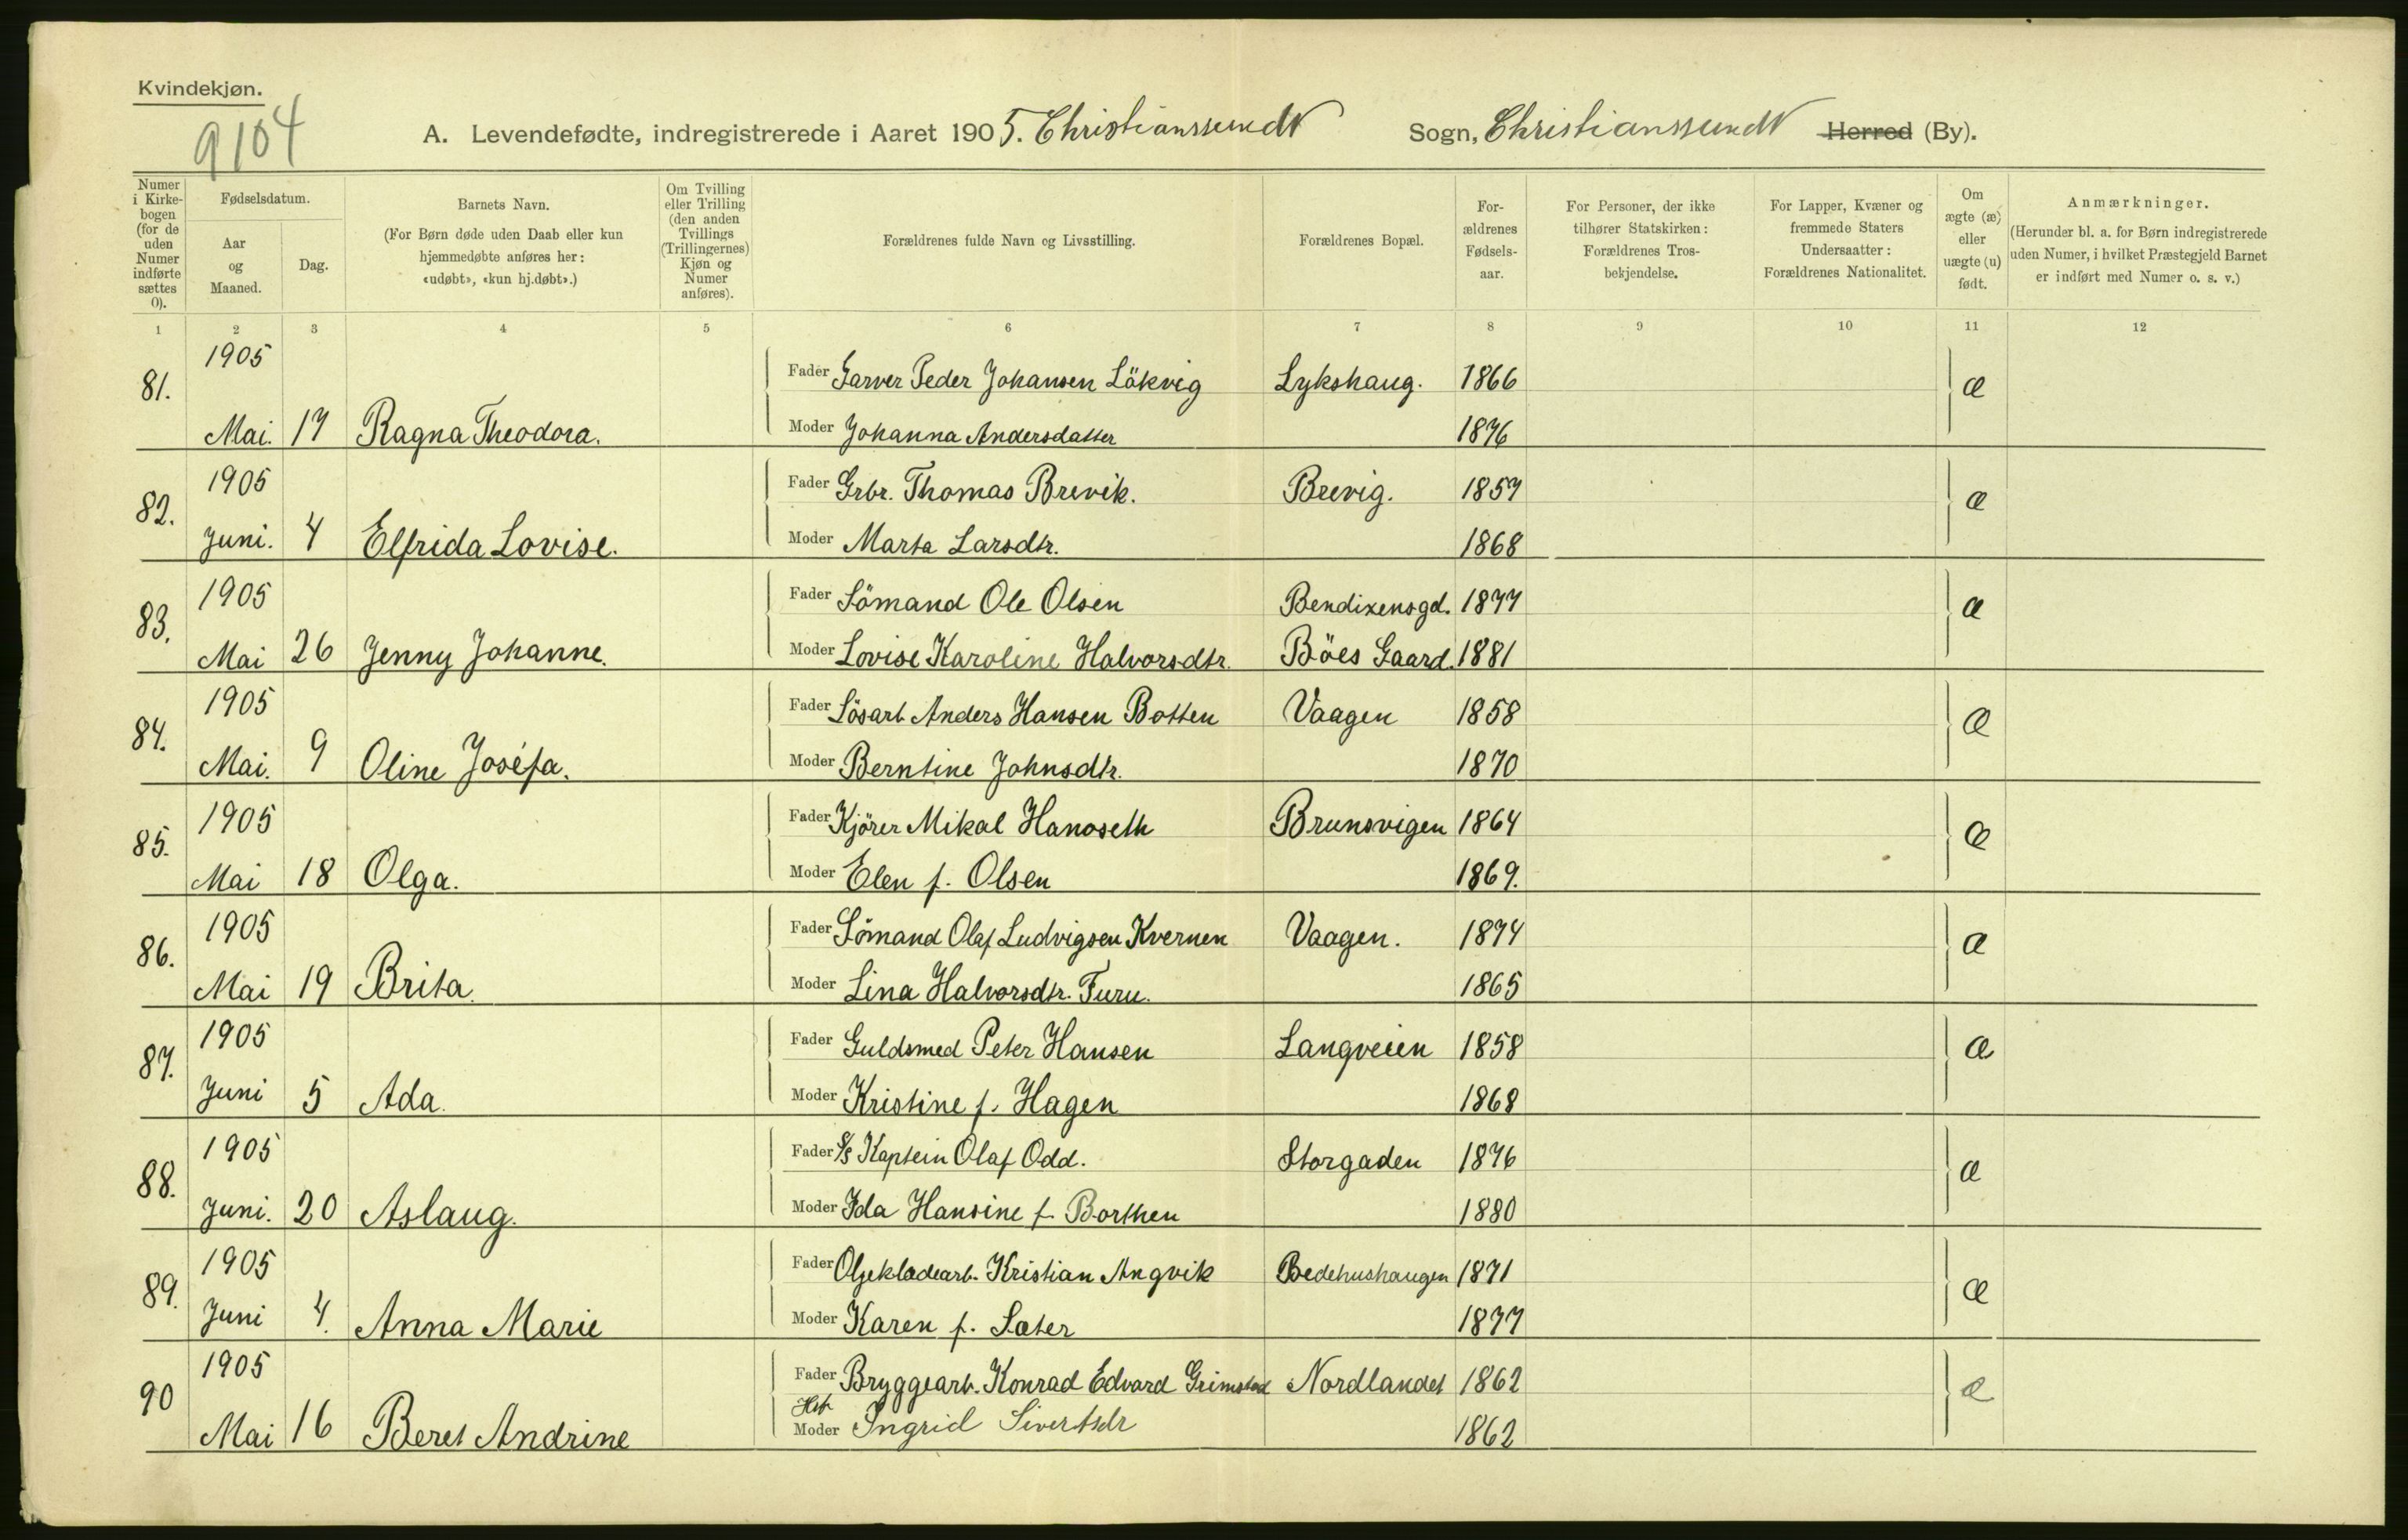 Kvindekjøn.
9104
A. Levendefødte, indregistrerede i Aaret 1905. Christianssund Sogn, Christianssund Herred (By).
Numer i Kirkebogen (for de uden Numer indførte sættes 0).
Fødselsdatum.
Aar og Maaned.
Dag.
Barnets Navn.
(For Børn døde uden Daab eller kun hjemmedøbte anføres her: «udøbt», «kun hj.døbt».)
Om Tvilling eller Trilling (den anden Tvillings (Trillingernes) Kjøn og Numer anføres).
Forældrenes fulde Navn og Livsstilling.
Forældrenes Bopæl.
Forældrenes Fødselsaar.
For Personer, der ikke tilhører Statskirken: Forældrenes Trosbekjendelse.
For Lapper, Kvæner og fremmede Staters Undersaatter: Forældrenes Nationalitet.
Om ægte (æ) eller uægte (u) født.
Anmærkninger.
(Herunder bl. a. for Børn indregistrerede uden Numer, i hvilket Præstegjeld Barnet er indført med Numer o. s. v.)
1 2 3 4 5 6 7 8 9 10 11 12
81. 1905 Fader Garver Peder Johansen Lökvig Lykshaug. 1866 æ
Mai. 17 Ragna Theodora. Moder Johanna Andersdatter 1876
82. 1905 Fader Grbr. Thomas Brevik. Brevig. 1857 æ
Juni. 4 Elfrida Lovise. Moder Marta Larsdtr. 1868
83. 1905 Fader Sömand Ole Olsen Bendixensgd. 1877 æ
Mai 26 Jenny Johanne. Moder Lovise Karoline Halvorsdtr. Böes Gaard. 1881
84. 1905 Fader Lösarb. Anders Hansen Botten Vaagen 1858 æ
Mai. 9 Oline Joséfa. Moder Berntine Johnsdtr. 1870
85. 1905 Fader Kjörer Mikal Hanoseth Brunsvigen 1864 æ
Mai 18 Olga. Moder Elen f. Olsen 1869.
86. 1905 Fader Sömand Olaf Ludvigsen Kvernen Vaagen. 1874 æ
Mai 19 Brita. Moder Lina Halvorsdtr. Furu. 1865
87. 1905 Fader Guldsmed Peter Hansen Langveien 1858 æ
Juni 5 Ada. Moder Kristine f. Hagen 1868
88. 1905 Fader S/S Kaptein Olaf Odd. Storgaden 1876 æ
Juni. 20 Aslaug. Moder Ida Hansine f. Borthen 1880
89. 1905 Fader Oljeklædearb. Kristian Angvik Bedehushaugen 1871 æ
Juni 4. Anna Marie Moder Karen f. Sæter 1877
90 1905 Fader Bryggearb. Konrad Edvard Grimstad Nordlandet 1862 æ
Mai 16 Beret Andrine Moder Ingrid Sivertsdr 1862